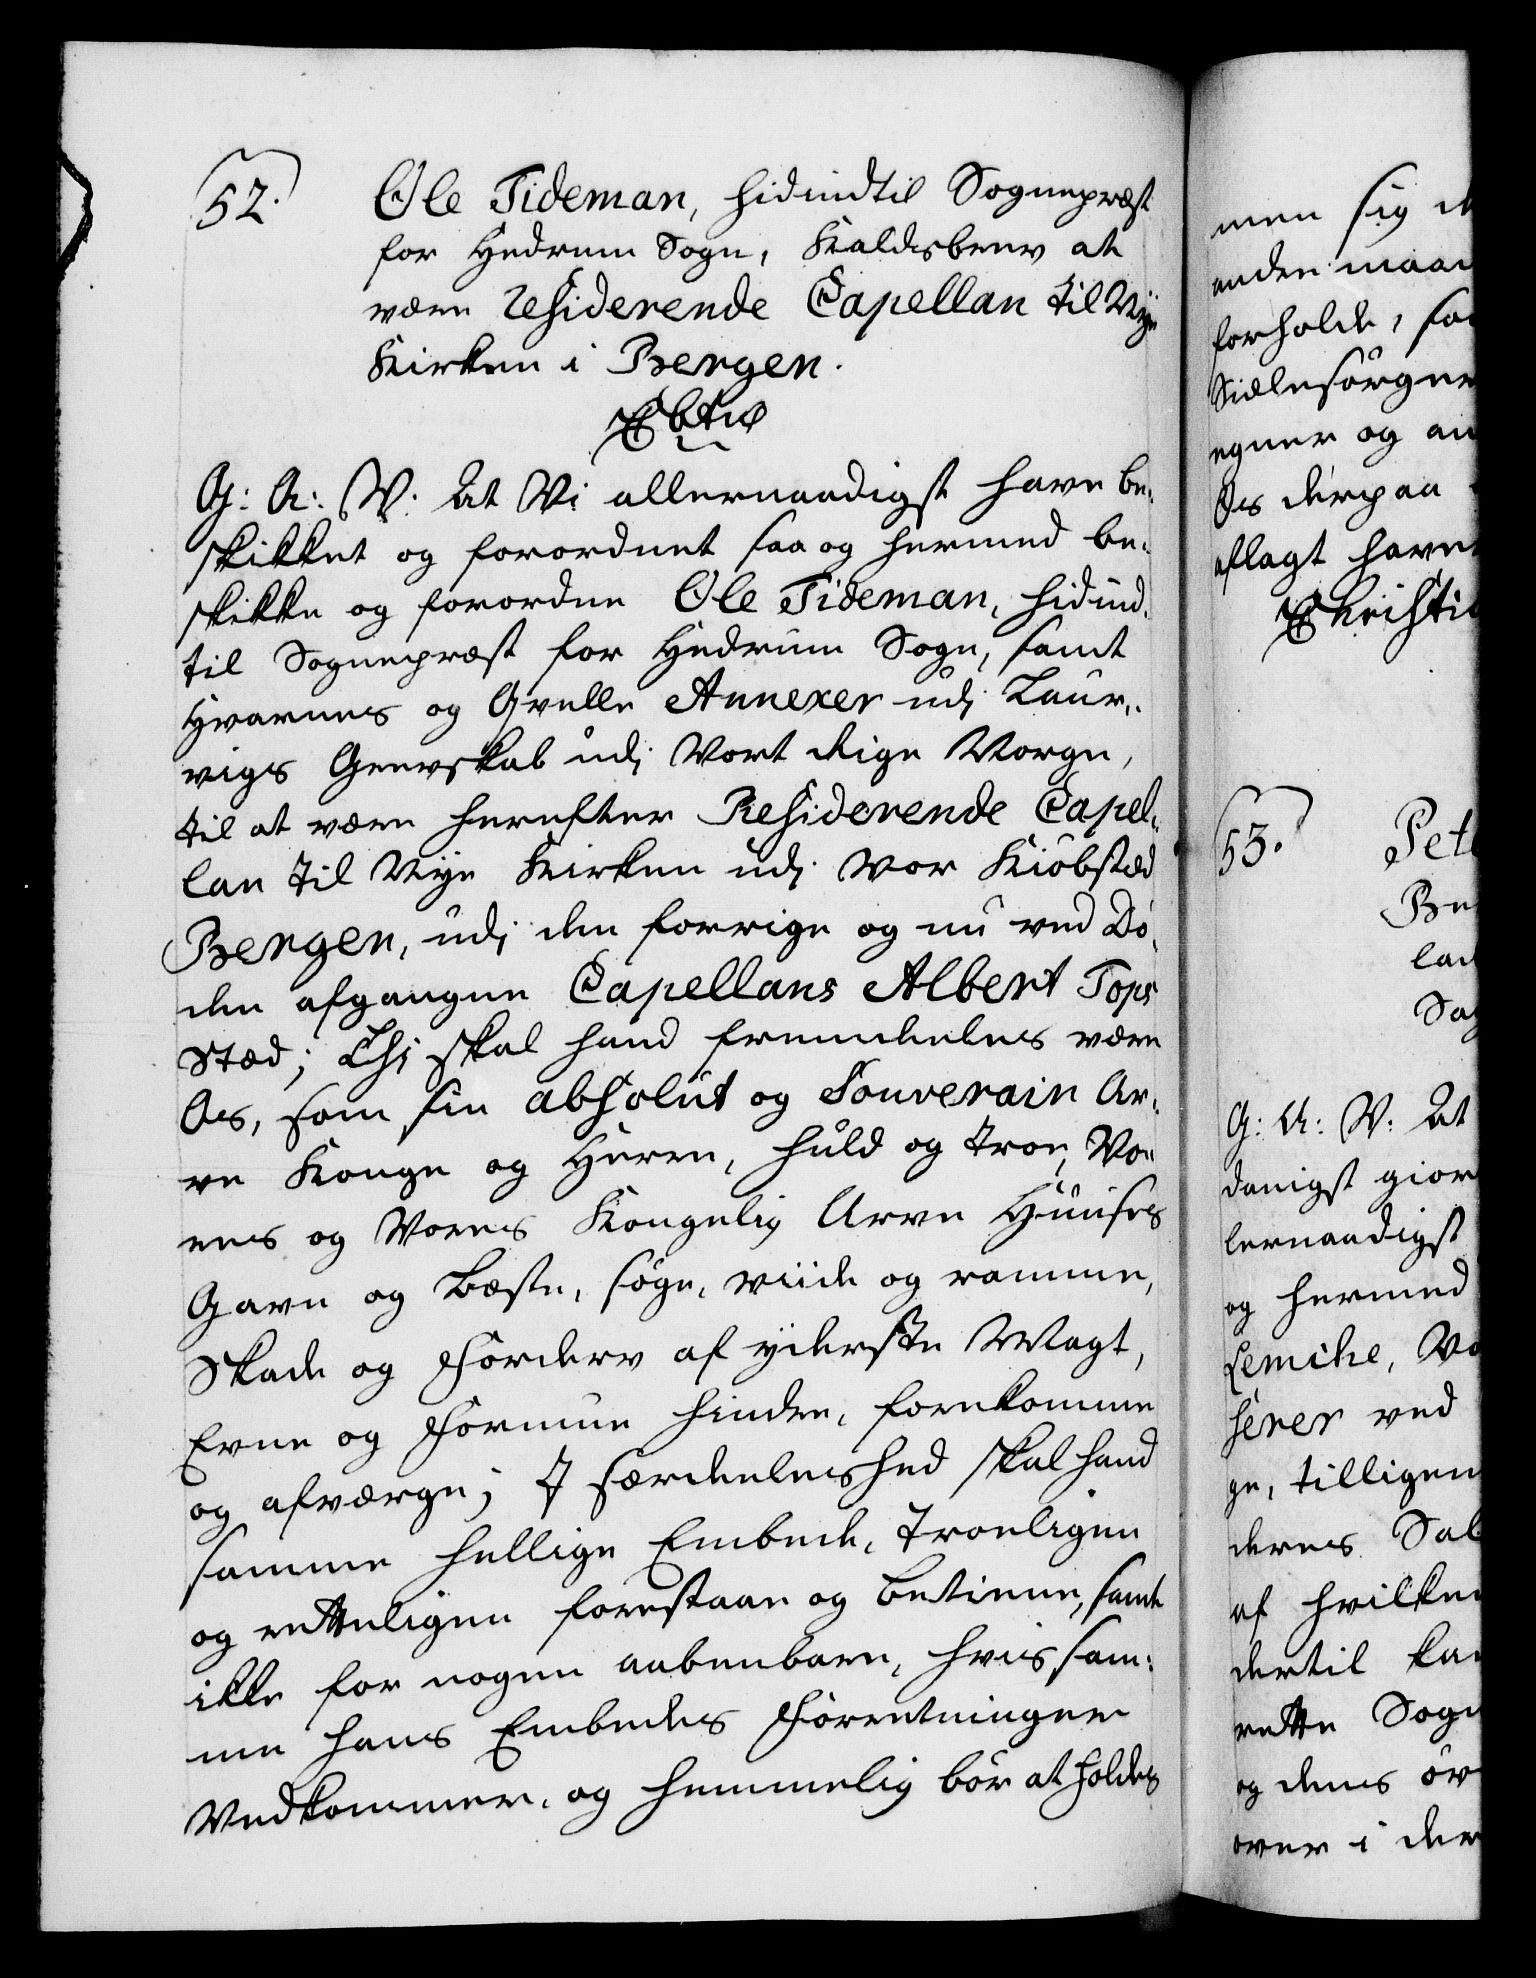 52.
Ole Tideman, hidindtil Sognepræst
for Hedrum Sogn, Kaldsbrev at
være Residerende Capellan til Nÿe
Kirken i Bergen.
G: A: V: At Vi allernaadigst have be-
skikket og forordnet saa og hermed be-
skikke og forordne Ole Tideman, hidind-
til Sognepræst for Hedrum Sogn, samt
Hvarnes og Qvelle Annexer udj Laur-
vigs Grevskab udj Vort Rige Norge,
til at være herefter Residerende Capel-
lan til Nÿe Kirken udj Vor Kiöbstæd
Bergen, udj den forrige og nu ved Dö-
den afgangne Capellans Albert Tops
Stæd; Thj skal hand fremdeeles være
Os, som sin absolut og Souverain Ar-
ve Konge og Herre, huld og troe, Vo-
res og Vores Kongelig Arve Huuses
Gavn og Bæste, söge, viide og ramme,
Skade og Forderv af ÿderste Magt,
Evne og Formue hindre, forekomme
og afværge; I særdeeleshed skal hand
samme hellige Embede, Troeligen
og retteligen forestaae og betiene, samt
ikke for nogen aabenbare, hvis sam-
me hans Embedes Forretninger
Vedkommer, og hemmelig bör at holdes
men sig
anden maa
forholde, saa
Siælesörger
egner og an
Os derpaa
aflagt have
Christi
53.
Pet
Be
lad
Sog
G: A: V: At
danigst gior
lernaadigst
og hermed
Lemche, Vo
serer ved
ge, tilligem
deres Sal
af hvilken
dertil kan
rette Sogn
og dens öv
over i der